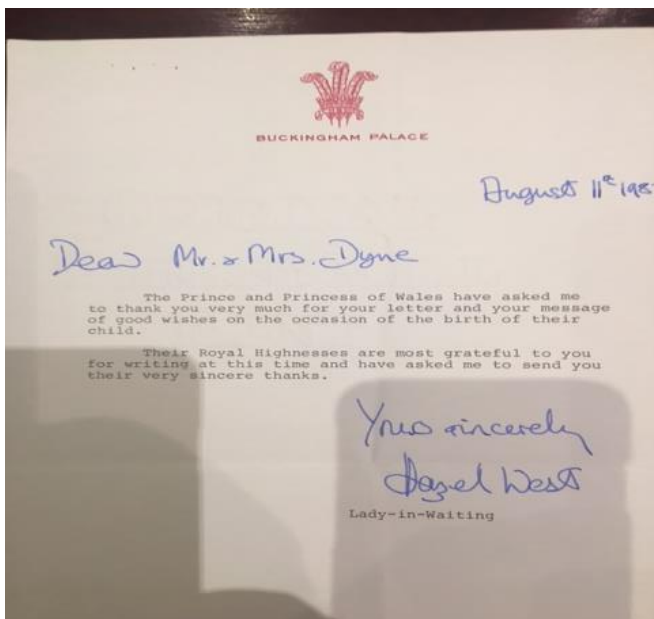 BUCKINGHAM PALACE
August 11th 198
Dear Mr. & Mrs. Dyne
The Prince and Princess of Wales have asked me
to thank you very much for your letter and your message
of good wishes on the occasion of the birth of their
child.
Their Royal Highnesses are most grateful to you
for writing at this time and have asked me to send you
their very sincere thanks.
Yours sincerely
Hazel West
Lady-in-Waiting